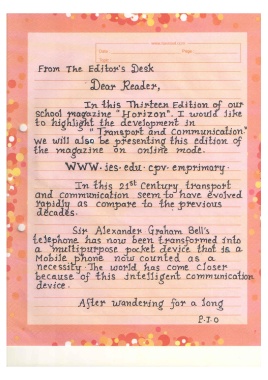 From The Editor's Desk
Dear Reader,
In this Thirteen Edition of our
School magazine "Horizon". I would like
to highlight the development in
"Transport and Communication."
We will also be presenting this edition of
the magazine on online mode.
WWW.ies.edu.cpv.emprimary.
In this 21st Century, transport
and communication seem to have evolved
rapidly as compare to the previous
decades.
Sir Alexander Graham Bell's
telephone has now been transformed into
a multipurpose pocket device that is a
Mobile phone now counted as a
necessity. The world has come Closer
because of this intelligent communication
device.
After wandering for a long
P.T.O